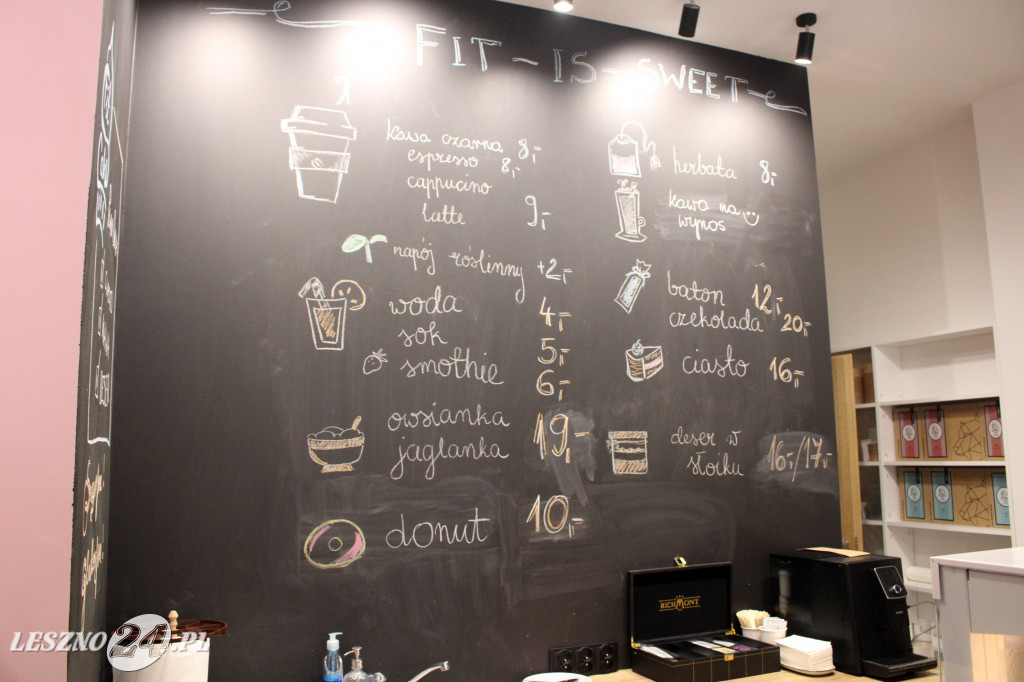 FIT - IS - SWEET
kawa czarna 8,-
espresso 8,-
cappucino
latte 9,-
napój roślinny +2,-
woda 4,-
sok 5,-
smothie 6,-
owsianka
jaglanka 19,-
donut 10,-
herbata 8,-
kawa na
wynos
baton 12,-
czekolada 20,-
ciasto 16,-
deser w
słoiku 16,-/17,-
RICHMONT
LESZNO24.PL